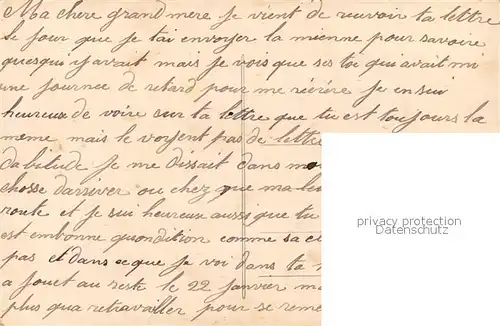 Ma chere grand mere je vient de recevoir ta lettre
le jour que je tai envoyer la mienne pour savoire
quesqui y avait mais je vois que ses toi qui avait mi
une journee de retard pour me récrire je en sui
heureux de voire sur ta lettre que tu est toujours la
meme mais le voyent pas de lettre
dabitude je me dissait dans mo
chosse darriver ou chez que ma le
route et je sui heureux aussi que tu
est embonne quondition comme sa e
pas et dans ce que je voi dans ta
a jouet au reste le 22 janvier m
plus qua retravailler pour se reme
privacy protection
Datenschutz